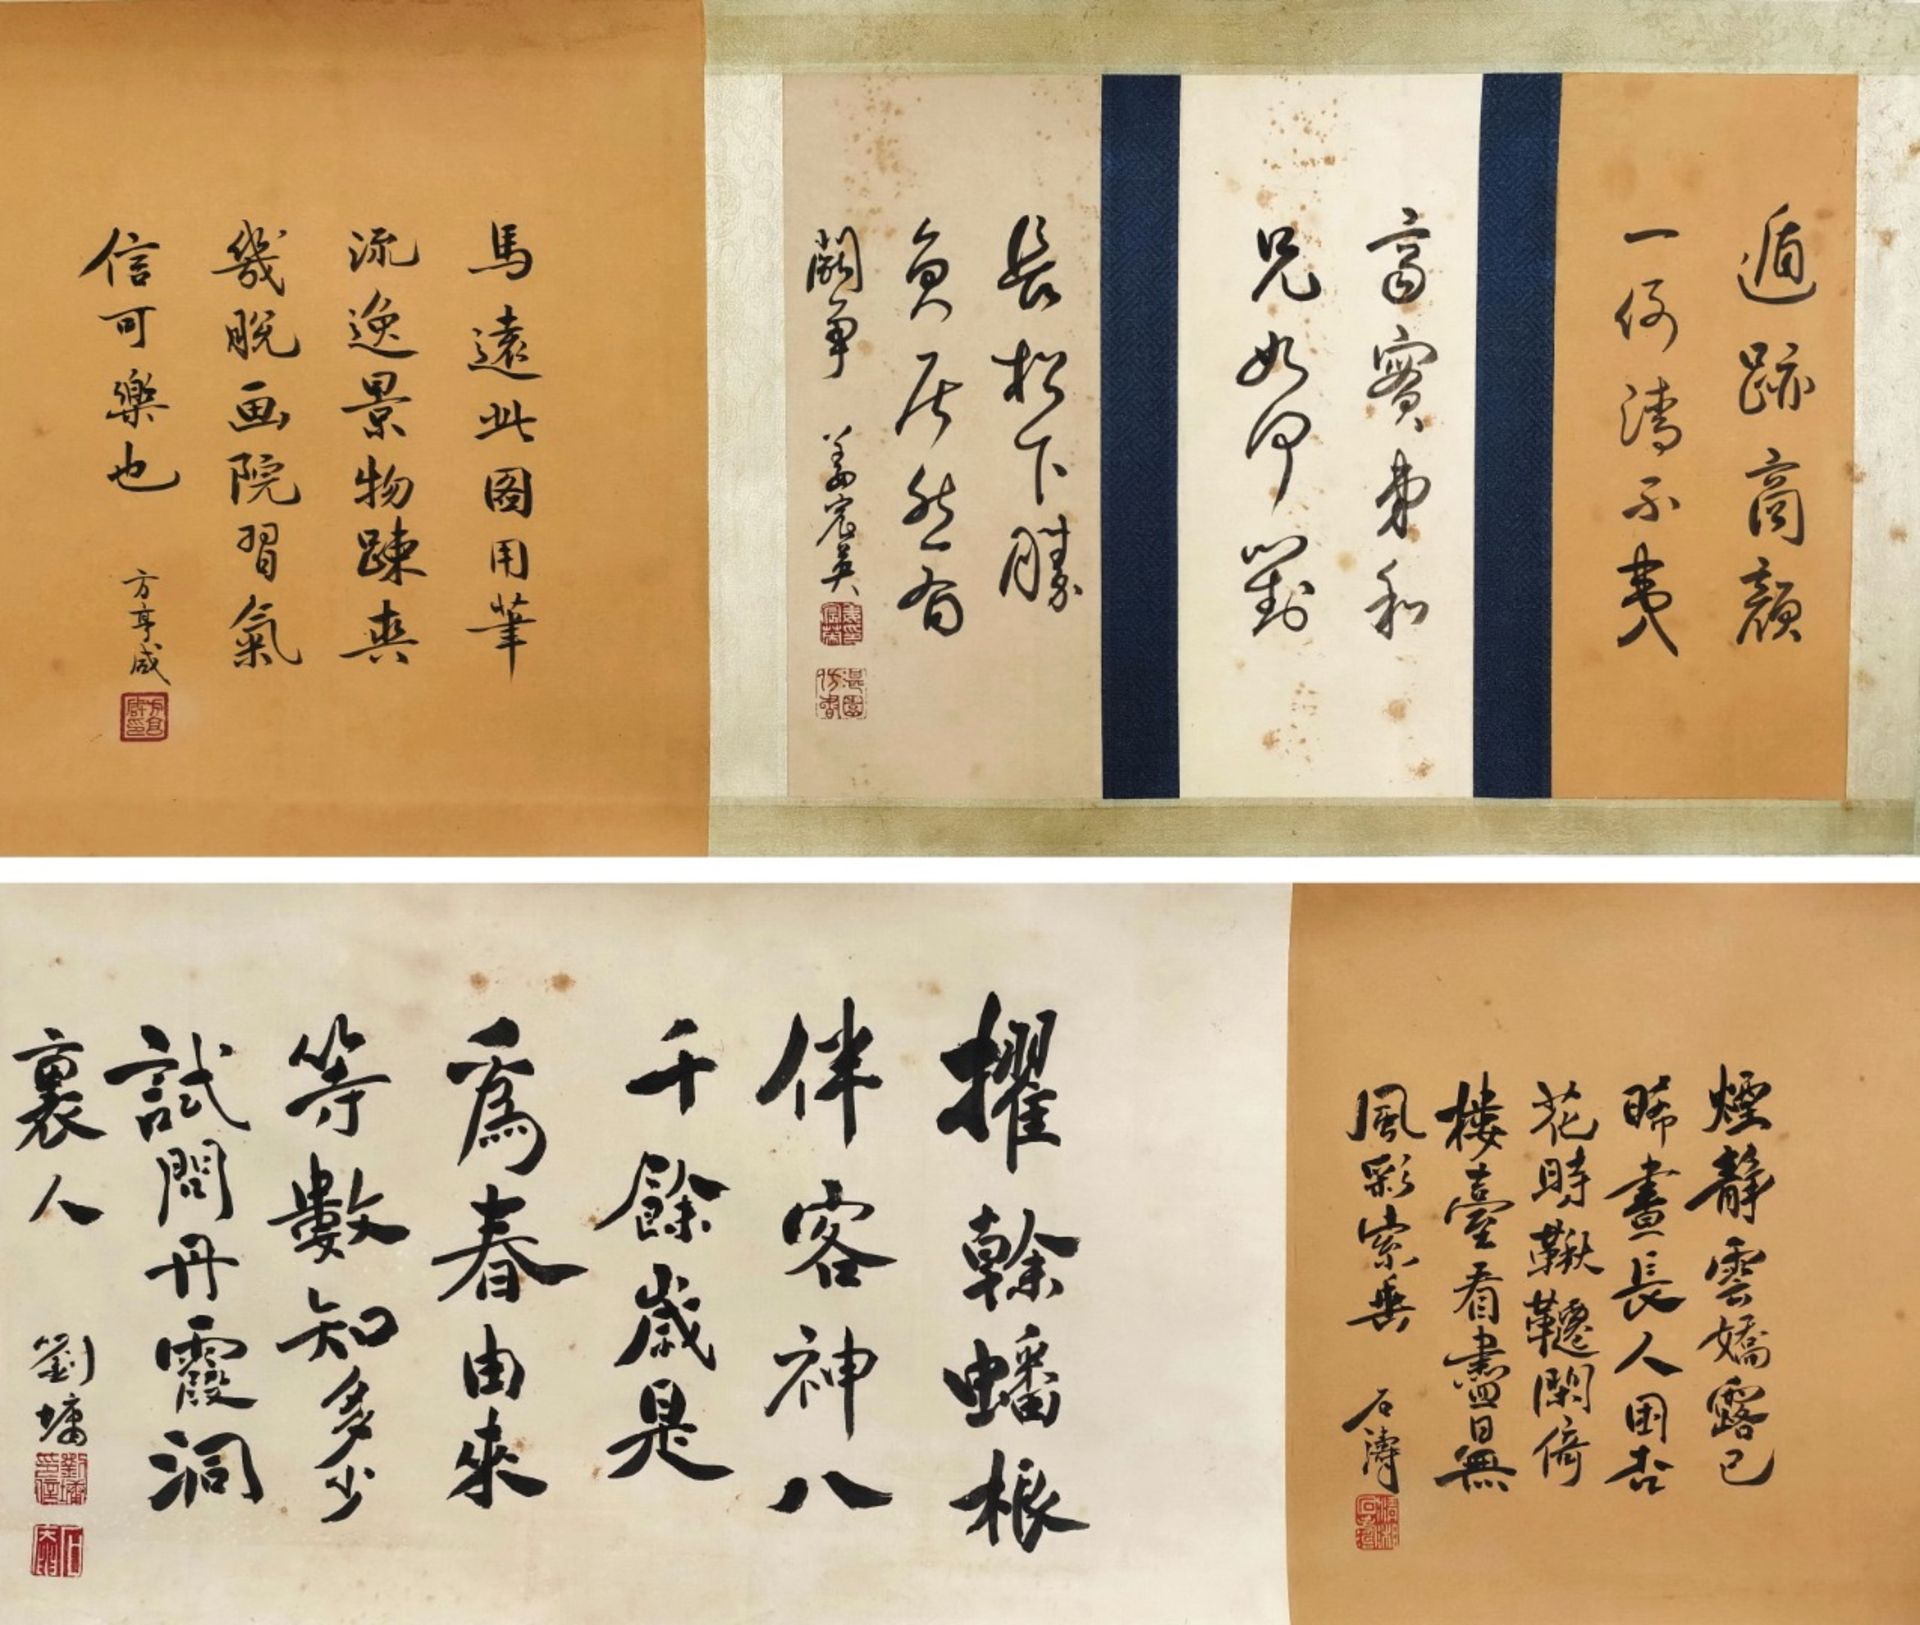 遁跡商顏
一何清不夷
高賓弟和
兄如伊對
長松下勝
負居然有
鬭争 姜宸英
馬遠此圖用筆
流逸景物踈爽
幾脫画院習氣
信可樂也
方亨咸
煙靜雲嬌露已
晞晝長人困杏
花時鞦韆閑倚
樓臺看盡日無
風彩索垂 石濤
清湘石濤
擢榦蟠根
伴客神八
千餘歲是
為春由來
等數知多少
試問丹霞洞
裏人 劉墉
劉墉印信